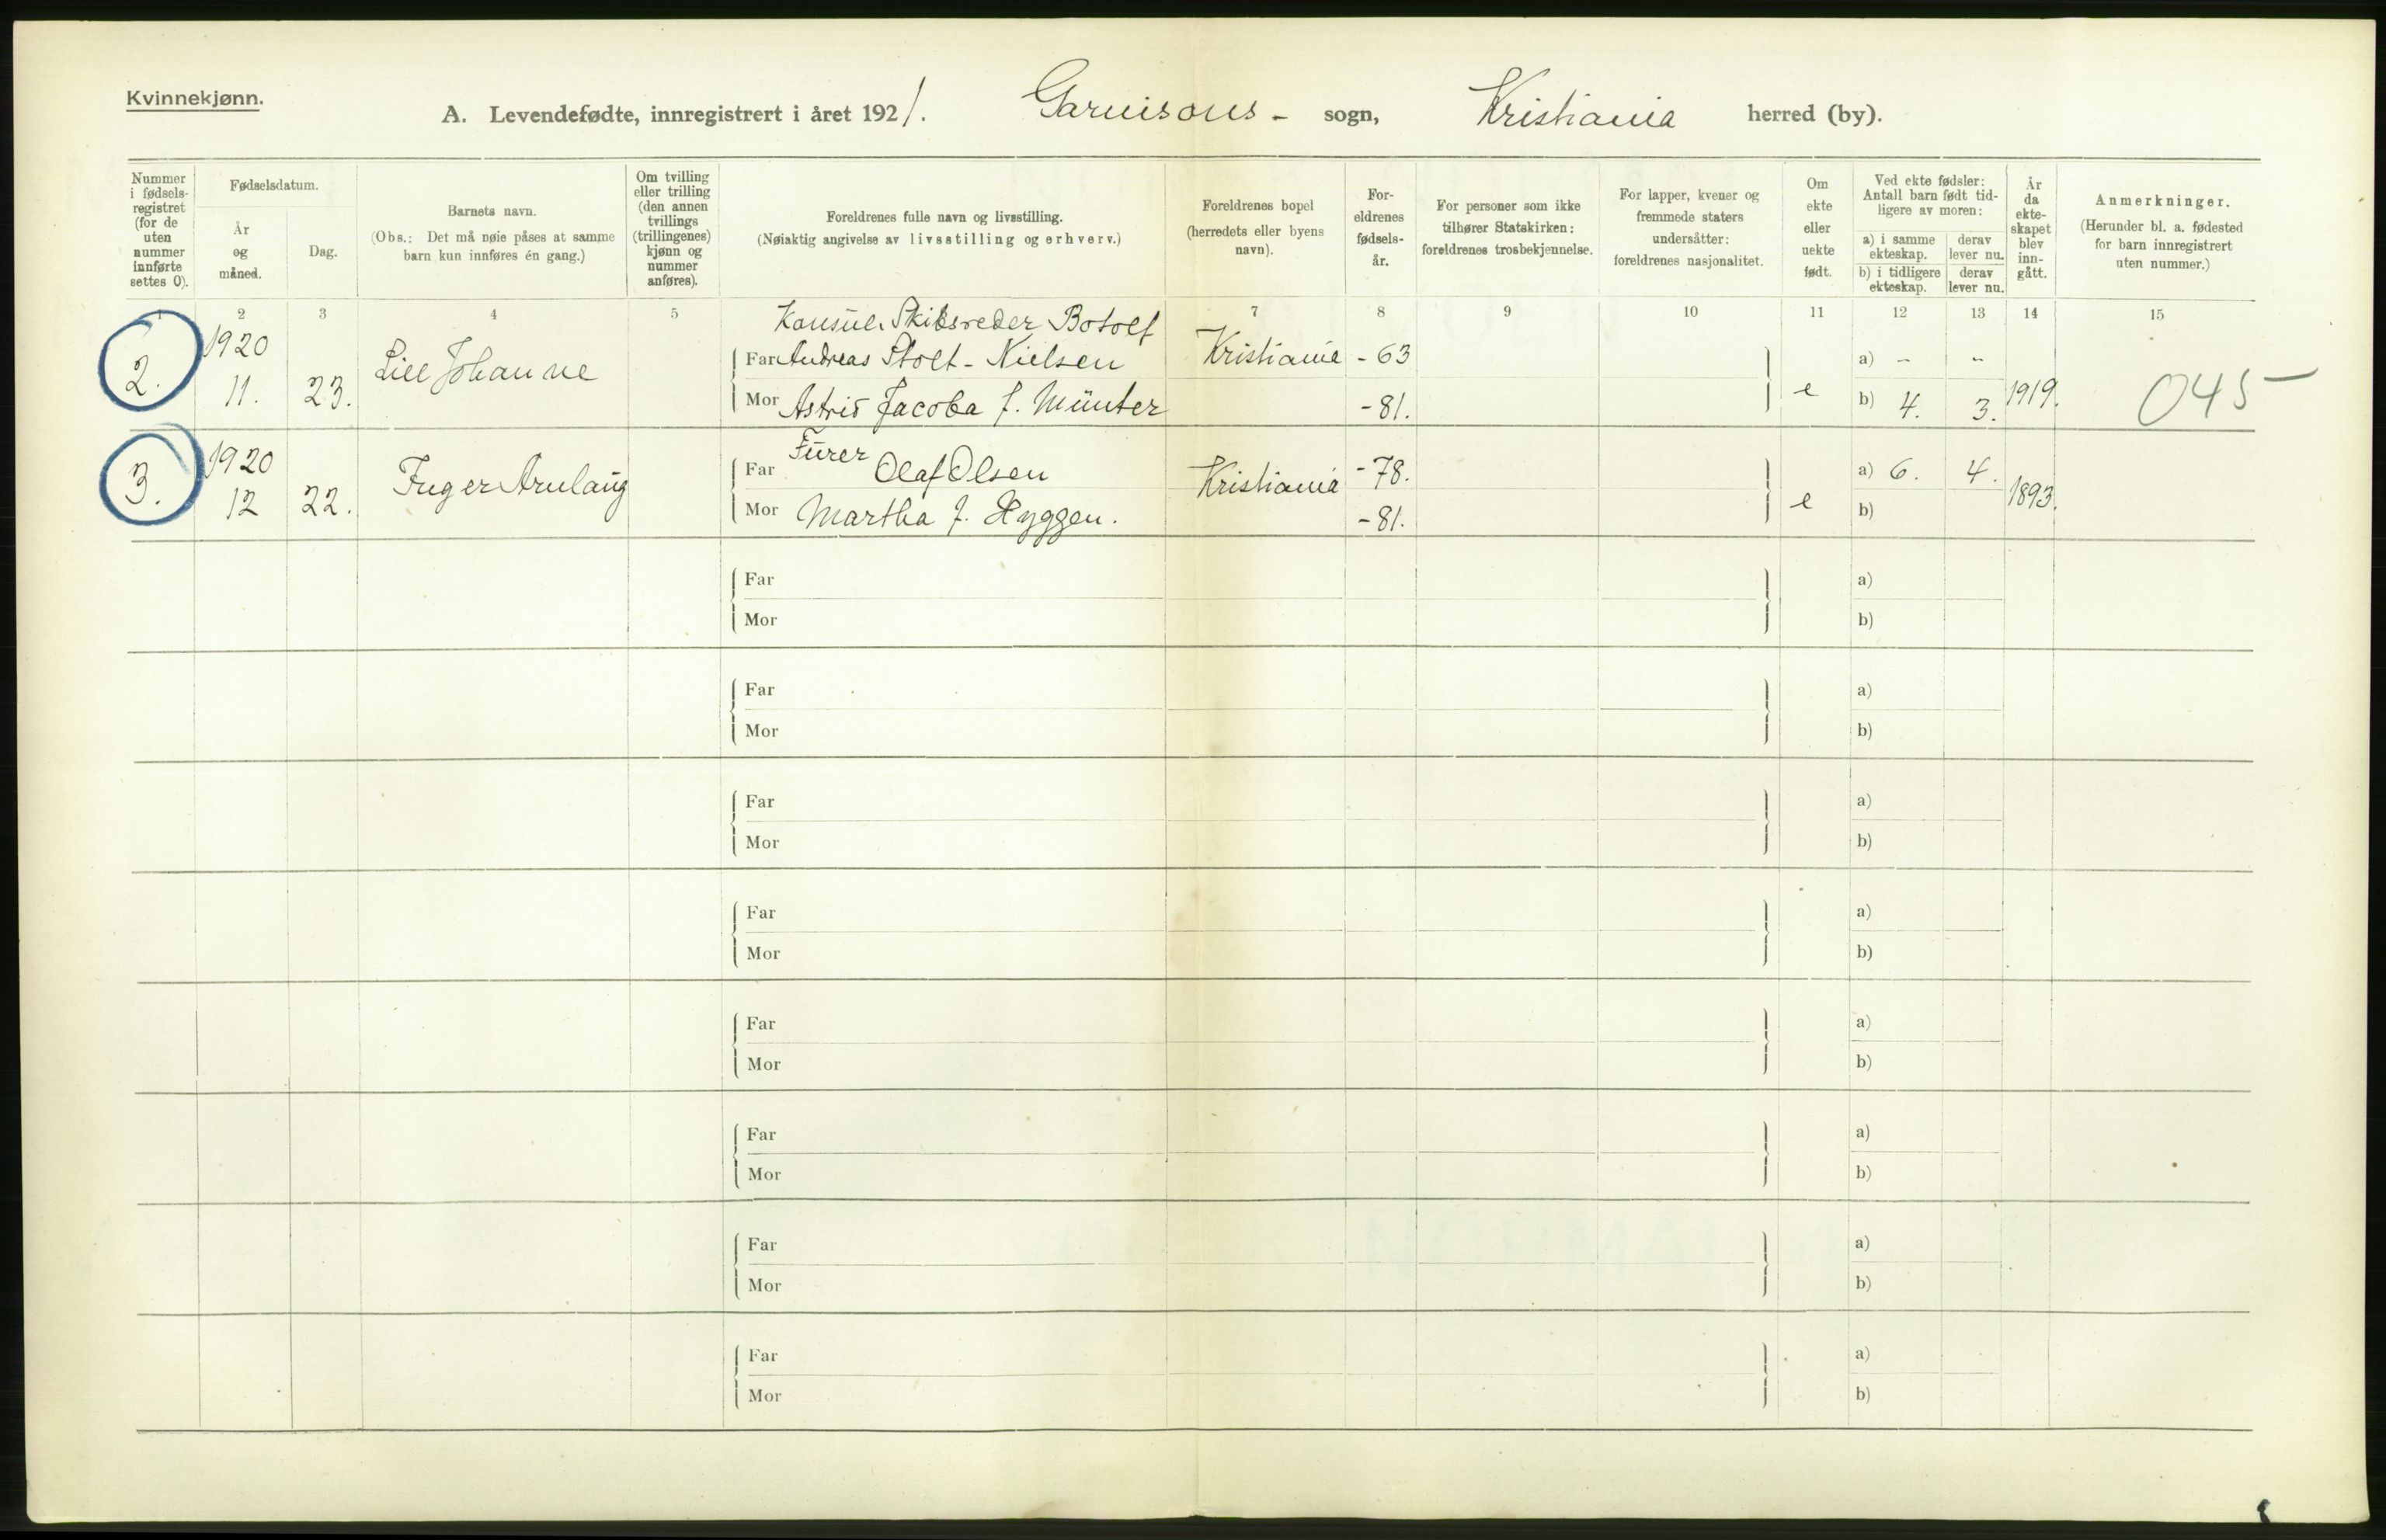 Kvinnekjønn.
A. Levendefødte, innregistrert i året 1921. Garnisons- sogn, Kristiania herred (by).
Nummer i fødsels-registret (for de uten nummer innførte settes 0).
Fødselsdatum.
År og måned.
Dag.
Barnets navn.
(Obs.: Det må nøie påses at samme barn kun innføres én gang.)
Om tvilling eller trilling (den annen tvillings (trillingenes) kjønn og nummer anføres).
Foreldrenes fulle navn og livsstilling.
(Nøiaktig angivelse av livsstilling og erhverv.)
Foreldrenes bopel (herredets eller byens navn).
For-eldrenes fødsels-år.
For personer som ikke tilhører Statskirken: foreldrenes trosbekjennelse.
For lapper, kvener og fremmede staters undersåtter: foreldrenes nasjonalitet.
Om ekte eller uekte født.
Ved ekte fødsler: Antall barn født tid-ligere av moren:
a) i samme ekteskap. derav lever nu.
b) i tidligere ekteskap. derav lever nu.
År da ekte-skapet blev inn-gått.
Anmerkninger.
(Herunder bl. a. fødested for barn innregistrert uten nummer.)
1 2 3 4 5 7 8 9 10 11 12 13 14 15
Konsul. Skibsreder Botolf
2. 1920 11. 23. Lill Johanne Far Andreas Stolt-Nielsen Kristiania -63 e a) - -
Mor Astrid Jacoba f. Münter -81. b) 4. 3. 1919. 045
Furer
3. 1920 12 22. Inger Arnlaug Far Olaf Olsen Kristiania -78. e a) 6. 4. 1893.
Mor Martha f. Hyggen. -81. b)
Far a)
Mor b)
Far a)
Mor b)
Far a)
Mor b)
Far a)
Mor b)
Far a)
Mor b)
Far a)
Mor b)
Far a)
Mor b)
Far a)
Mor b)